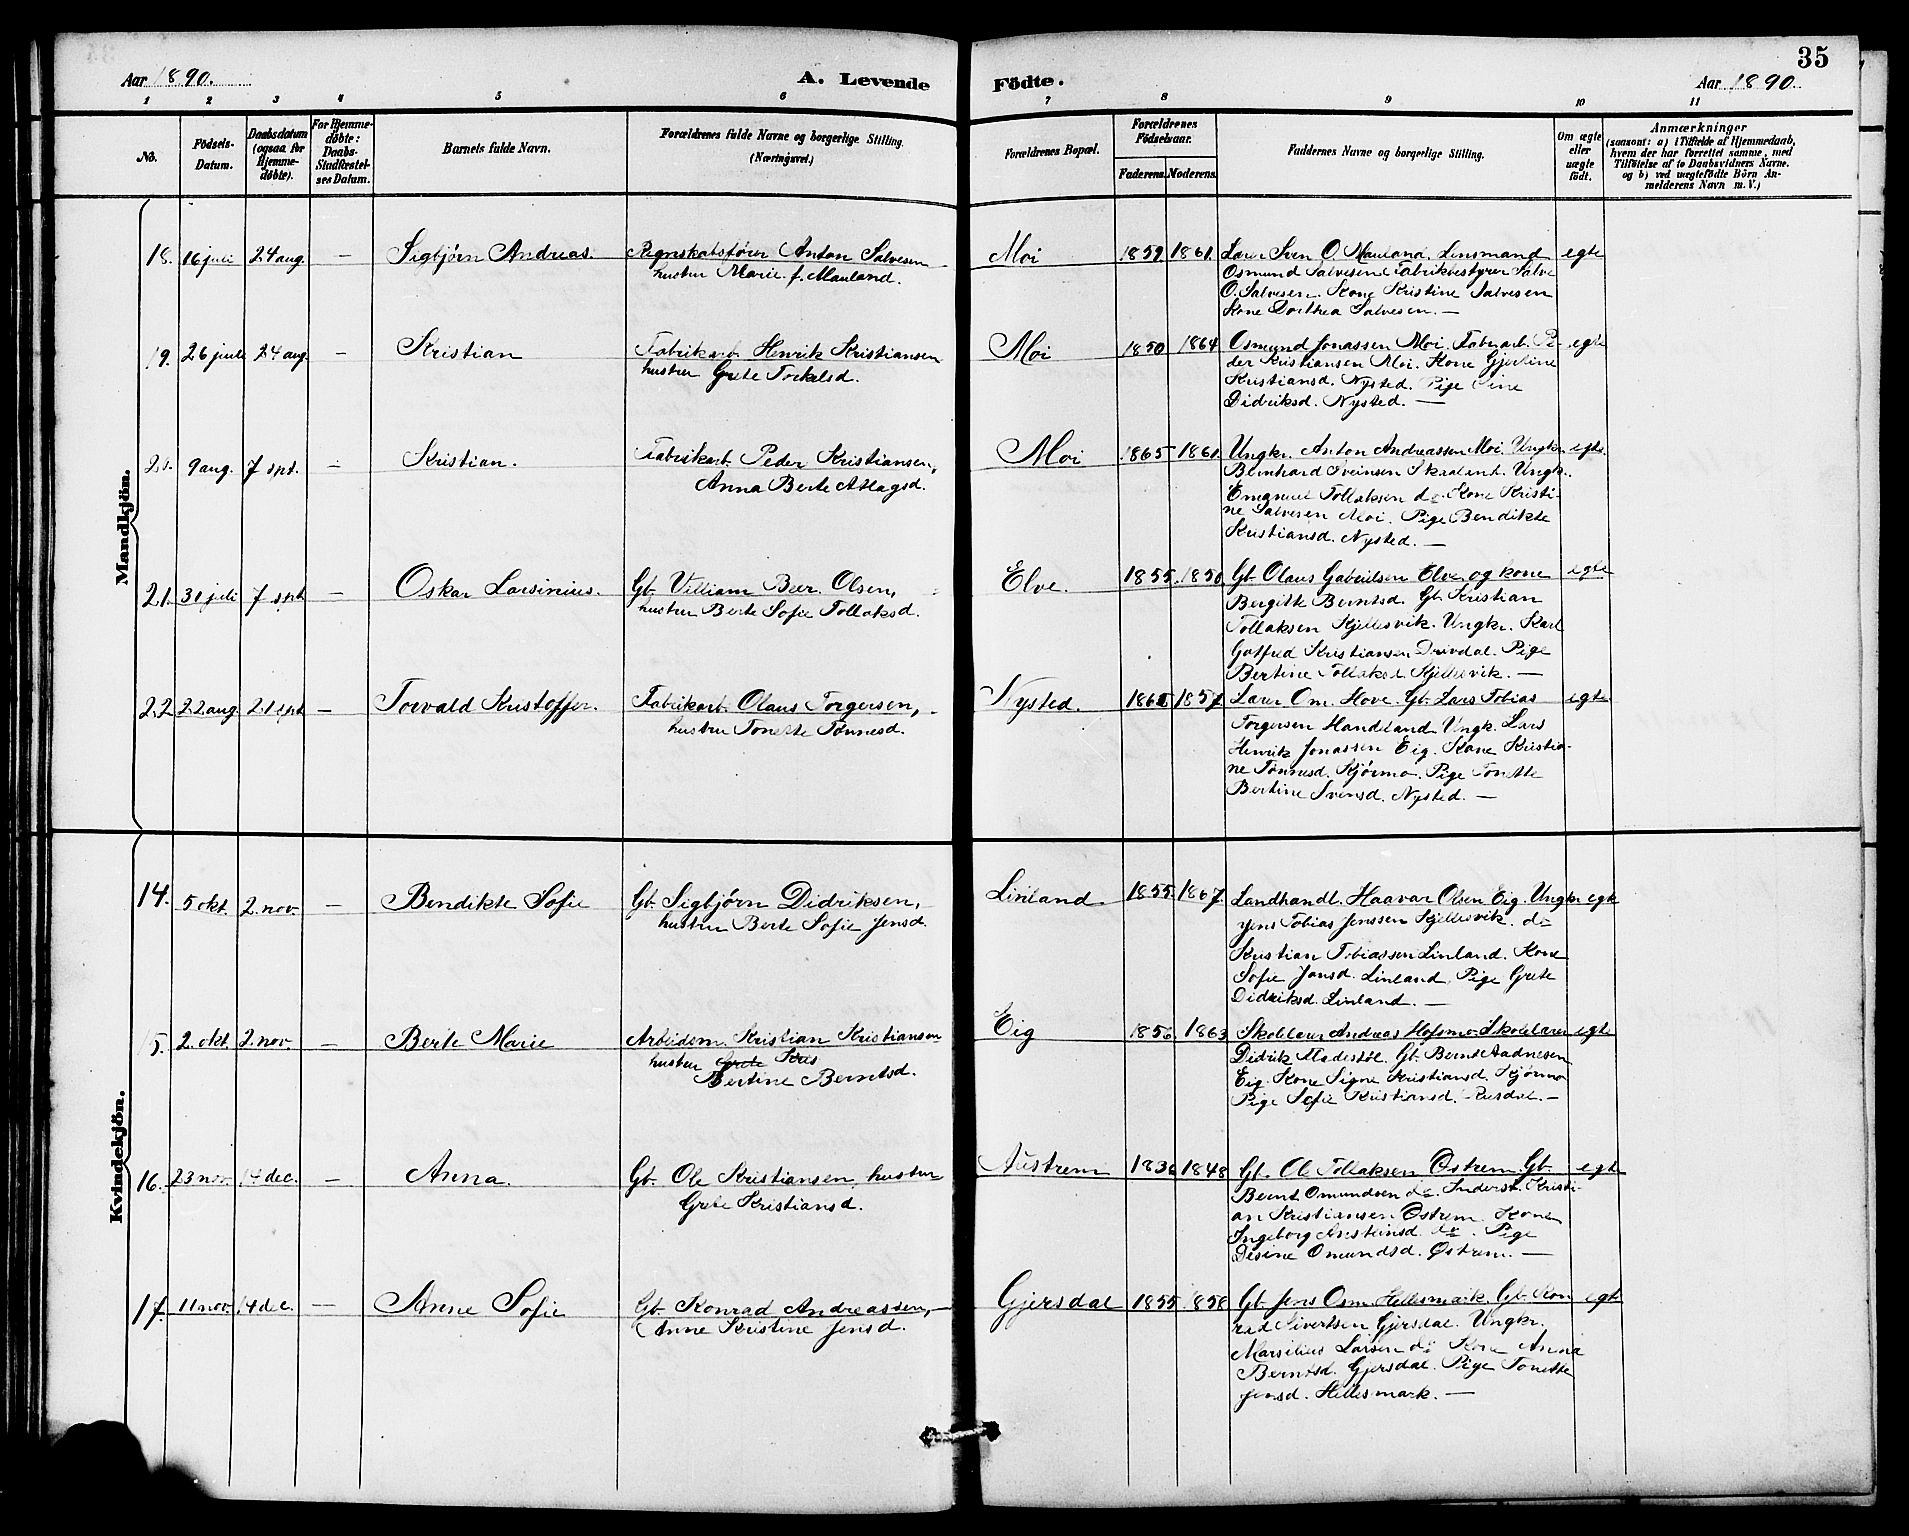 35
Aar 1890.
A. Levende
Födte.
Aar 1890.
1 2 3 4 5 6 7 8 9 10 11
No.
Födsels-
Datum.
Daabsdatum
(ogsaa for
Hjemme-
döbte).
For Hjemme-
döbte:
Daabs-
Stadfæstel-
ses Datum.
Barnets fulde Navn.
Forældrenes fulde Navne og borgerlige Stilling.
(Næringsvei.)
Forældrenes Bopæl.
Forældrenes
Födselsaar.
Faderens. Moderens.
Faddernes Navne og borgerlige Stilling.
Om ægte
eller
uægte
født.
Anmærkninger
(saasom: a) i Tilfælde af Hjemmedaab,
hvem der har forrettet samme, med
Tilföielse af to Daabsvidners Navne.
og b) ved uægtefödte Börn An-
melderens Navn m. V.)
Mandkjön.
18. 16 juli 24 aug. — Sigbjørn Andreas. Regnskabsfører Anton Salvesen
hustru Marie f. Mauland.
Moi 1859 1861. Lærer Sven O. Mauland. Lensmand egte
Osmund Salvesen Fabrikbestyrer Salve
O. Salvesen. Kone Kristine Salvesen
Kone Dorthea Salvesen. —
19. 26 juli 24 aug. — Kristian Fabrikarb. Henrik Kristiansen
hustru Grete Torkelsd.
Moi 1850 1864 Osmund Jonassen Moi. Fabrarb. Pe- egte
der Kristiansen Moi. Kone Gjertine
Kristiansd. Nysted. Pige Sine
Didriksd. Nysted. —
20. 9 aug. 7 spt. — Kristian. Fabrikarb. Peder Kristiansen,
Anna Berte Atlagsd.
Moi 1865 1861. Ungkr. Anton Andreassen Moi. Ungkr. egte
Bernhard Sveinsen Skaaland. Ungk.
Emanuel Tollaksen do. Kone Kristi-
ne Salvesen Moi. Pige Bendikte
Kristiansd. Nysted. —
21. 31 juli 7 spt — Oskar Larsinius. Gb. Villiam Beer. Olsen,
hustru Berte Sofie Tollaksd.
Elve. 1855. 1850. Gb. Olaus Gabrielsen Elve og kone egte
Bergitte Berntsd. Gb. Kristian
Tollaksen Kjellesvik. Ungkr. Karl
Gotfred Kristiansen Drivdal. Pige
Bertine Tollaksd. Kjellesvik. —
22 22 aug 21 spt — Torvald Kristoffer. Fabrikarb. Olaus Torgersen,
hustru Tonette Tønnesd.
Nysted. 1857 Lærer Om. Hove. Gb. Lars Tobias egte
Torgersen Handeland. Ungk. Lars
Henrik Jonassen Eig. Kone Kristia-
ne Tønnesd. Kjørmo. Pige Tonette
Bertine Svensd. Nysted. —
Kvindekjön.
14. 5 okt. 2 nov. — Bendikte Sofie Gb. Sigbjørn Didriksen,
hustru Berte Sofie Jensd.
Linland 1855. 1867. Landhandl. Haavar Olsen Eig. Ungkr egte
Jens Tobias Jenssen Kjellesvik. do
Kristian Tobiassen Linland. Kone
Sofie Jonsd. Linland. Pige Grete
Didriksd. Linland. —
15. 2. okt. 2. nov. — Berte Marie Arbeidsm. Kristian Kristiansen
hustru Grete Kris
Bertine Berntsd.
Eig 1856 1863 Skolelærer Andreas Hofsmo. Skolelærer egte
Didrik Fladestøl. Gb. Bernt Aadnesen
Eig. Kone Signe Kristiansd. Kjørmo
Pige Sofie Kristiansd. Rusdal. —
16. 23 nov. 14 dec. — Anna. Gb. Ole Kristiansen, hustru
Grete Kristiansd.
Austrem 1836 1848 Gb. Ole Tollaksen Østrem. Gb. egte
Bernt Omundsen do. Inderst. Kristi-
an Kristiansen Østrem. Kone
Ingeborg do. Pige
Desine Omundsd. Østrem. —
17. 11 nov. 14 dec. — Anne Sofie Gb. Konrad Andreassen, —
Anne Kristine Jensd.
Gjersdal 1855 1858 Gb. Jens Osm. Hellesmark. Gb. Kon egte
rad Sivertsen Gjersdal. Ungkr.
Marsilius Larsen do Kone Anna
Berntsd. Gjersdal. Pige Tonette
Jensd. Hellesmark. —